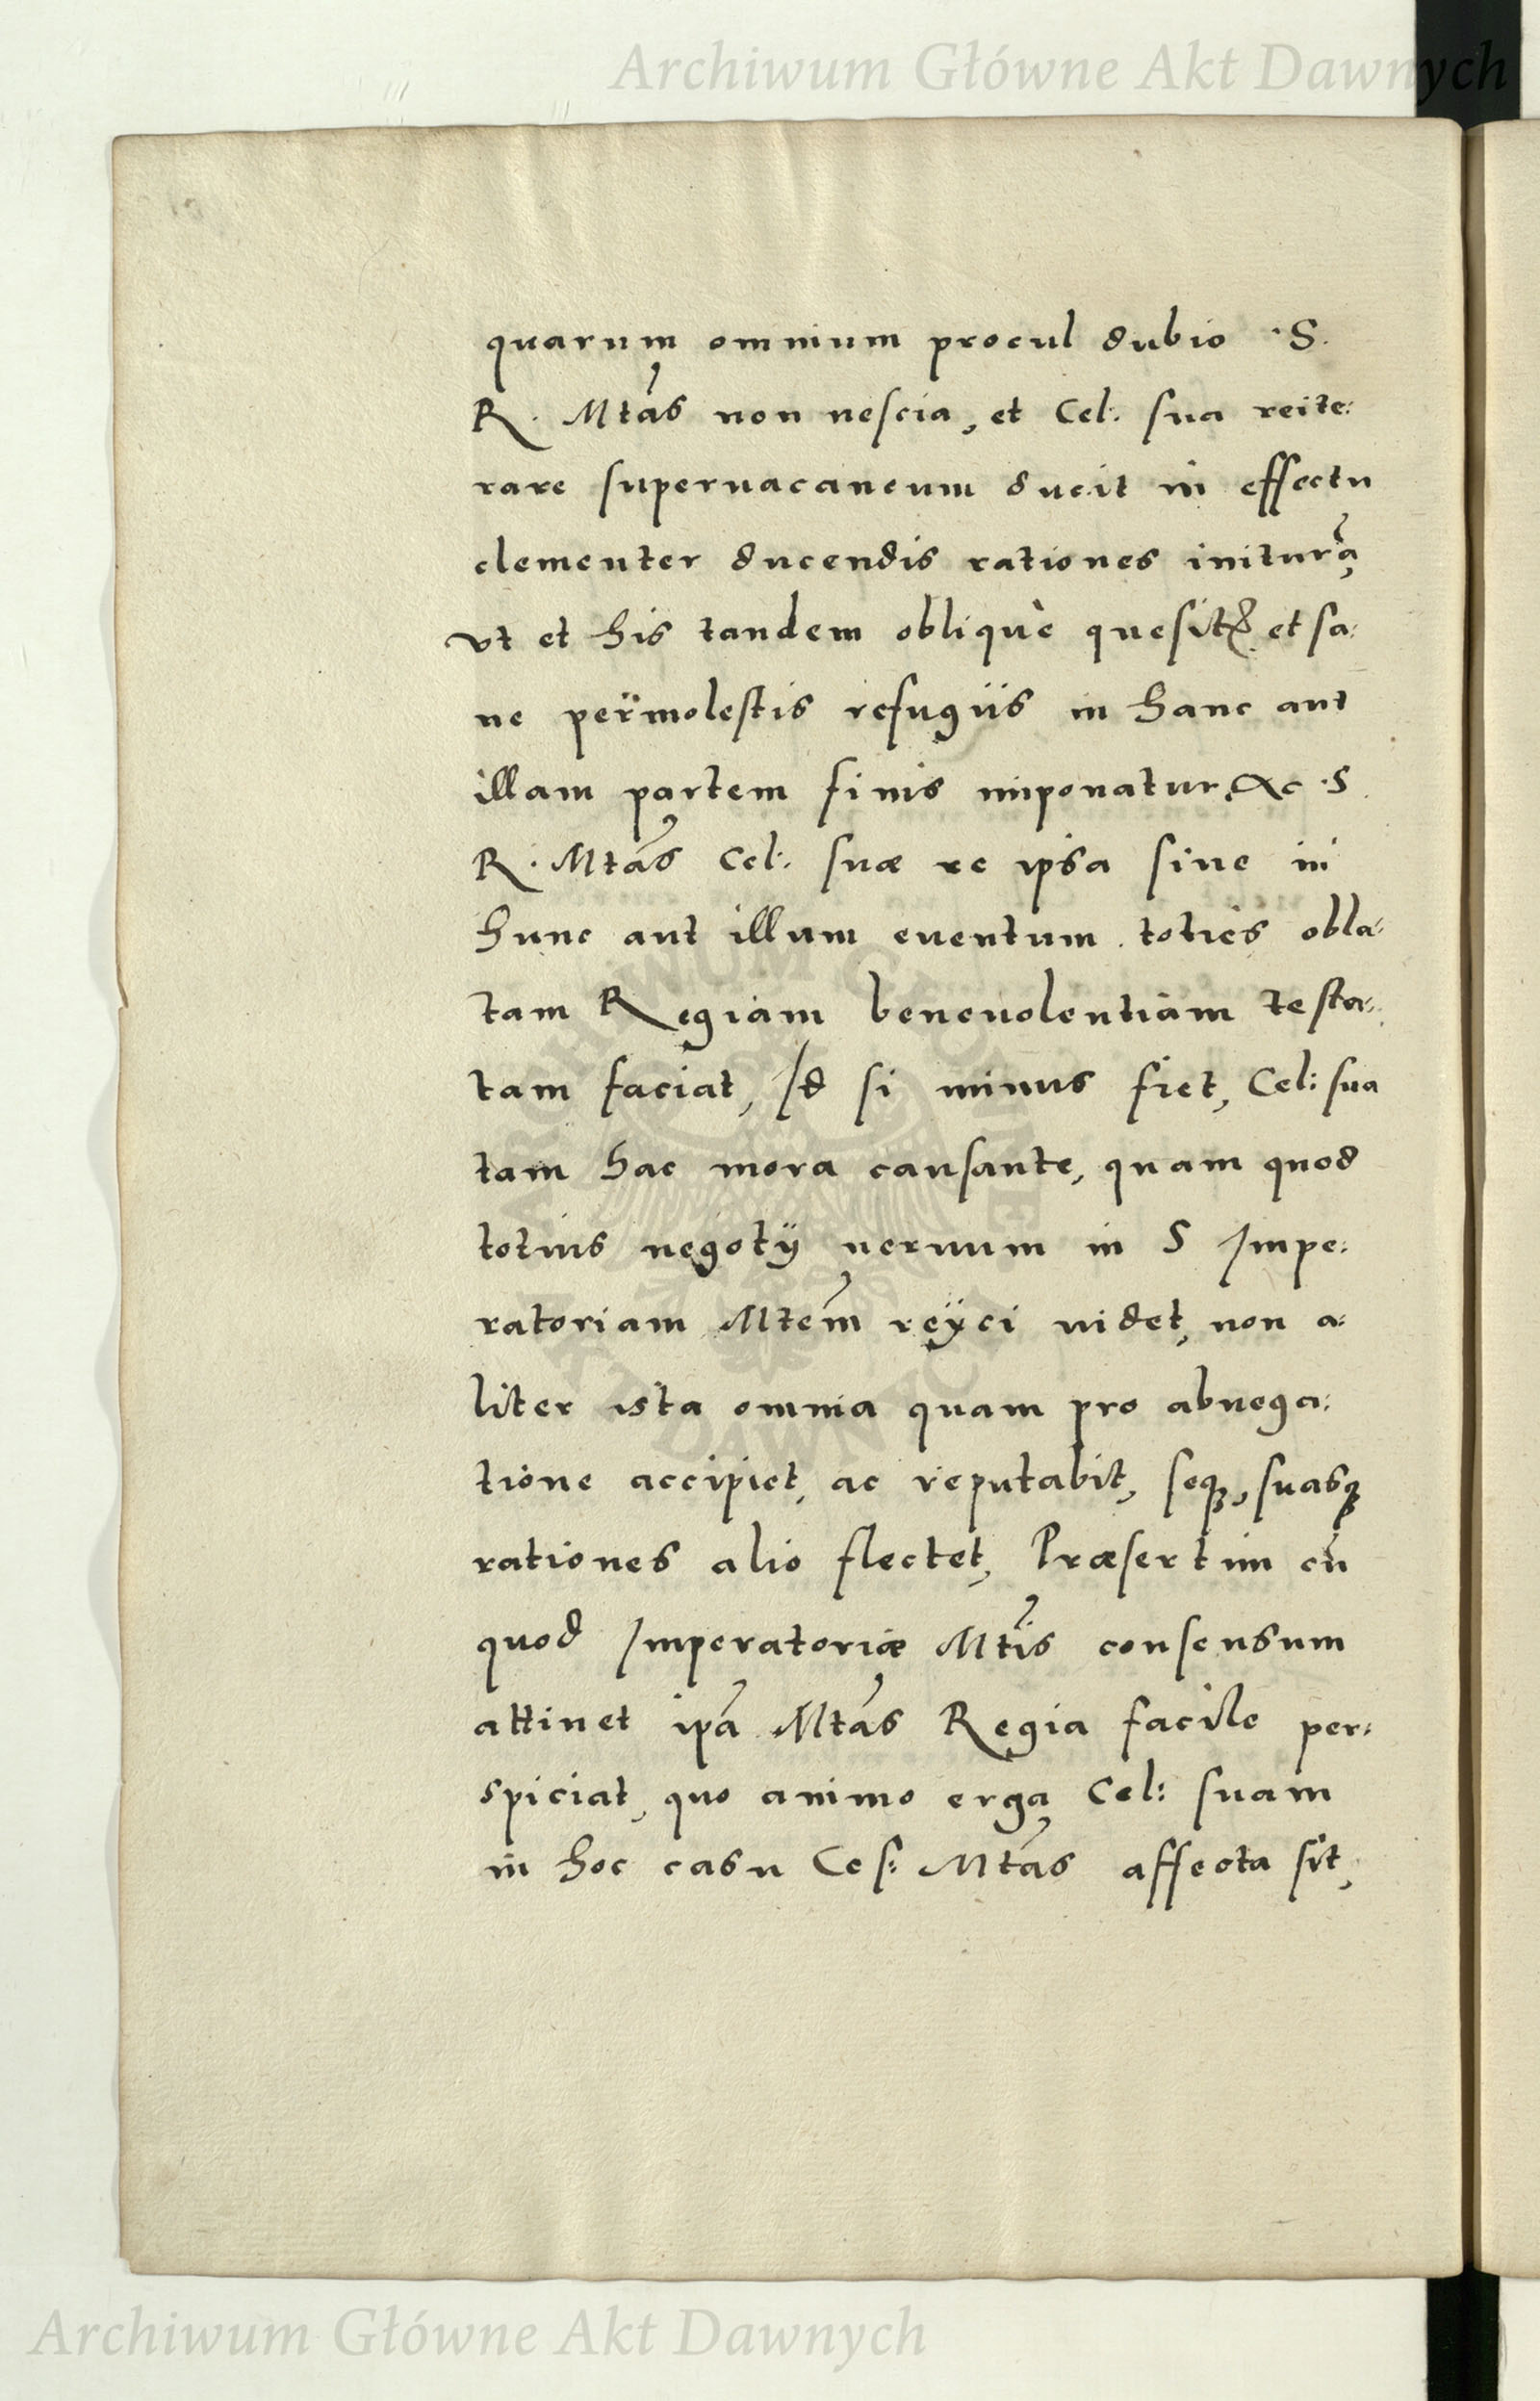 Archiwum Główne Akt Dawnych
quarum omnium procul dubio ·S.
R. Mtas non nescia, et Cel: sua reite:
rare superuacaneum ducit in effectu
clementer ducendis rationes initura,
vt et his tandem obliquè quesitis et sa:
ne permolestis refugiis in hanc aut
illam partem finis imponatur, &c ·S.
R. Mtas Cel: suæ re ipsa siue in
hunc aut illum euentum toties obla:
tam Regiam beneuolentiam testa:
tam faciat, Id si minus fiet, Cel: sua
tam hac mora causante, quam quod
totius negotÿ neruum in S Impe:
ratoriam Mtem reÿci uidet, non a:
liter ista omnia quam pro abnega:
tione accipiet, ac reputabit, seq3, suasq3
rationes alio flectet, Præsertim cū
quod Imperatoriæ Mtis consensum
attinet ipā Mtas Regia facile per:
spiciat, quo animo erga Cel: suam
in hoc casu Ces: Mtas affecta sit,
ARCHIWUM GŁÓWNE
AKT DAWNYCH
Archiwum Główne Akt Dawnych